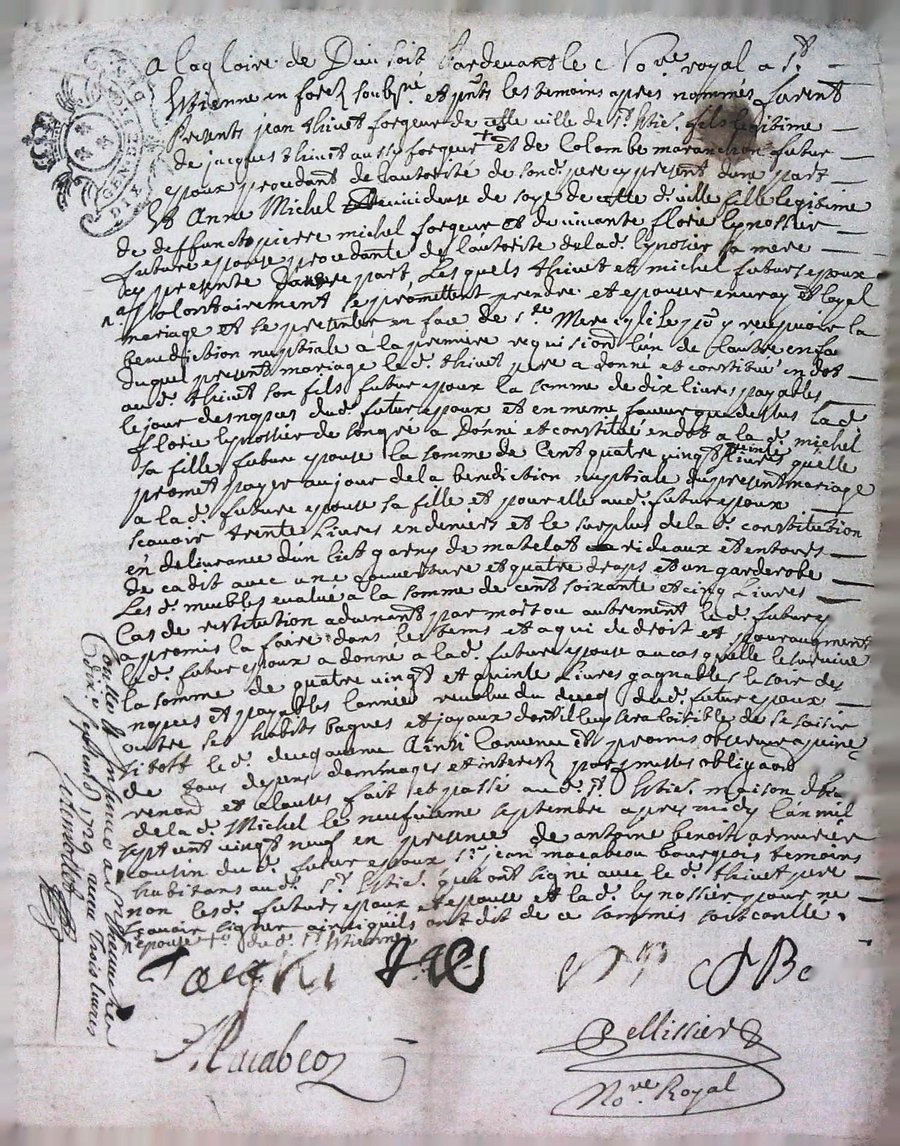 A la gloire de Dieu soit Pardevant le No.re royal a St
Estienne en forez soubsné et pnts les temoins apres nommés furent
Presents jean thivet forgeur de cette ville de St Estie. fils legitime
de jacques thivet aussy forgeur et de Colombe maranchon futur
epoux procedant de l'autorité de sond. pere cy present d'une part
Et Anne Michel devideuse de soye de cette d. ville fille legitime
de deffunct pierre michel forgeur et de vivante florie lynossier
future epouse procedante de l'autorite de lad. lynosier sa mere
cy presente d'autre part, Lesquels thivet et michel futurs epoux
volontairement se promettent prendre et epouser en vray et loyal
mariage et se presenter en face de Ste Mere eglise pour y recepvoir la
benediction nuptiale à la premiere requisiond l'un de l'autre en fa
duquel present mariage led. thivet pere a donné et constitué en dot
aud. thivet son fils futur epoux la somme de dix livres payables
le jour des nopces dud. futur epoux et en meme faveur que dessus lad.
florie lynossier de son gre a donné et constitué en dot a la d. michel
sa fille future epouse la somme de Cent quatre vingt quinze livres quelle
promet payer au jour de la benediction nuptiale du present mariage
a lad. future epouse sa fille et pour elle aud. futur epoux
scavoir trente livres en deniers et le surplus de la d. constitution
en delivrance d'un lict garny de matelat rideaux et entours
de cadit avec une couverture et quatre draps et un garderobe
Les d. meubles evalué a la somme de cent soixante et cinq Livres
Cas de restitution advenant par mort ou autrement led. futur
a promis la faire dans les tems et a qui de droit et pour augment
led. futur epoux a donné a lad. future epouse au cas quelle le survive
la somme de quatre vingt et quinze Livres gagnables le soir des
nopces et payables l'année revolue du deceq dud. futur epoux
outre ses habits bagues et joyaux dont il leur sera loisible de se saisir
sitost led. deceq Ainsi Convenu et promis observer a peine
de tous depens dommages et interest par mesmes obligaons
renond et clauses fait et passé aud. St Estie. maison dh.
de la d. Michel le neufvieme septembre apres midy l'an mil
sept cent vingt neuf en presence de antoine benoit armurier
cousin dud. futur epoux Sr jean macabeou bourgeois temoins
habitans aud. St Estie. qui ont signé avec le d. thivet pere
non lesd. futurs epoux et epouse et la d. lynossier pour ne
scavoir signer ainsi quils ont dit de ce sommés
epouse
dud. St Estienne
Macabeo
Pellissier
No.re Royal
Dix sept. 1729
GEN
DIX